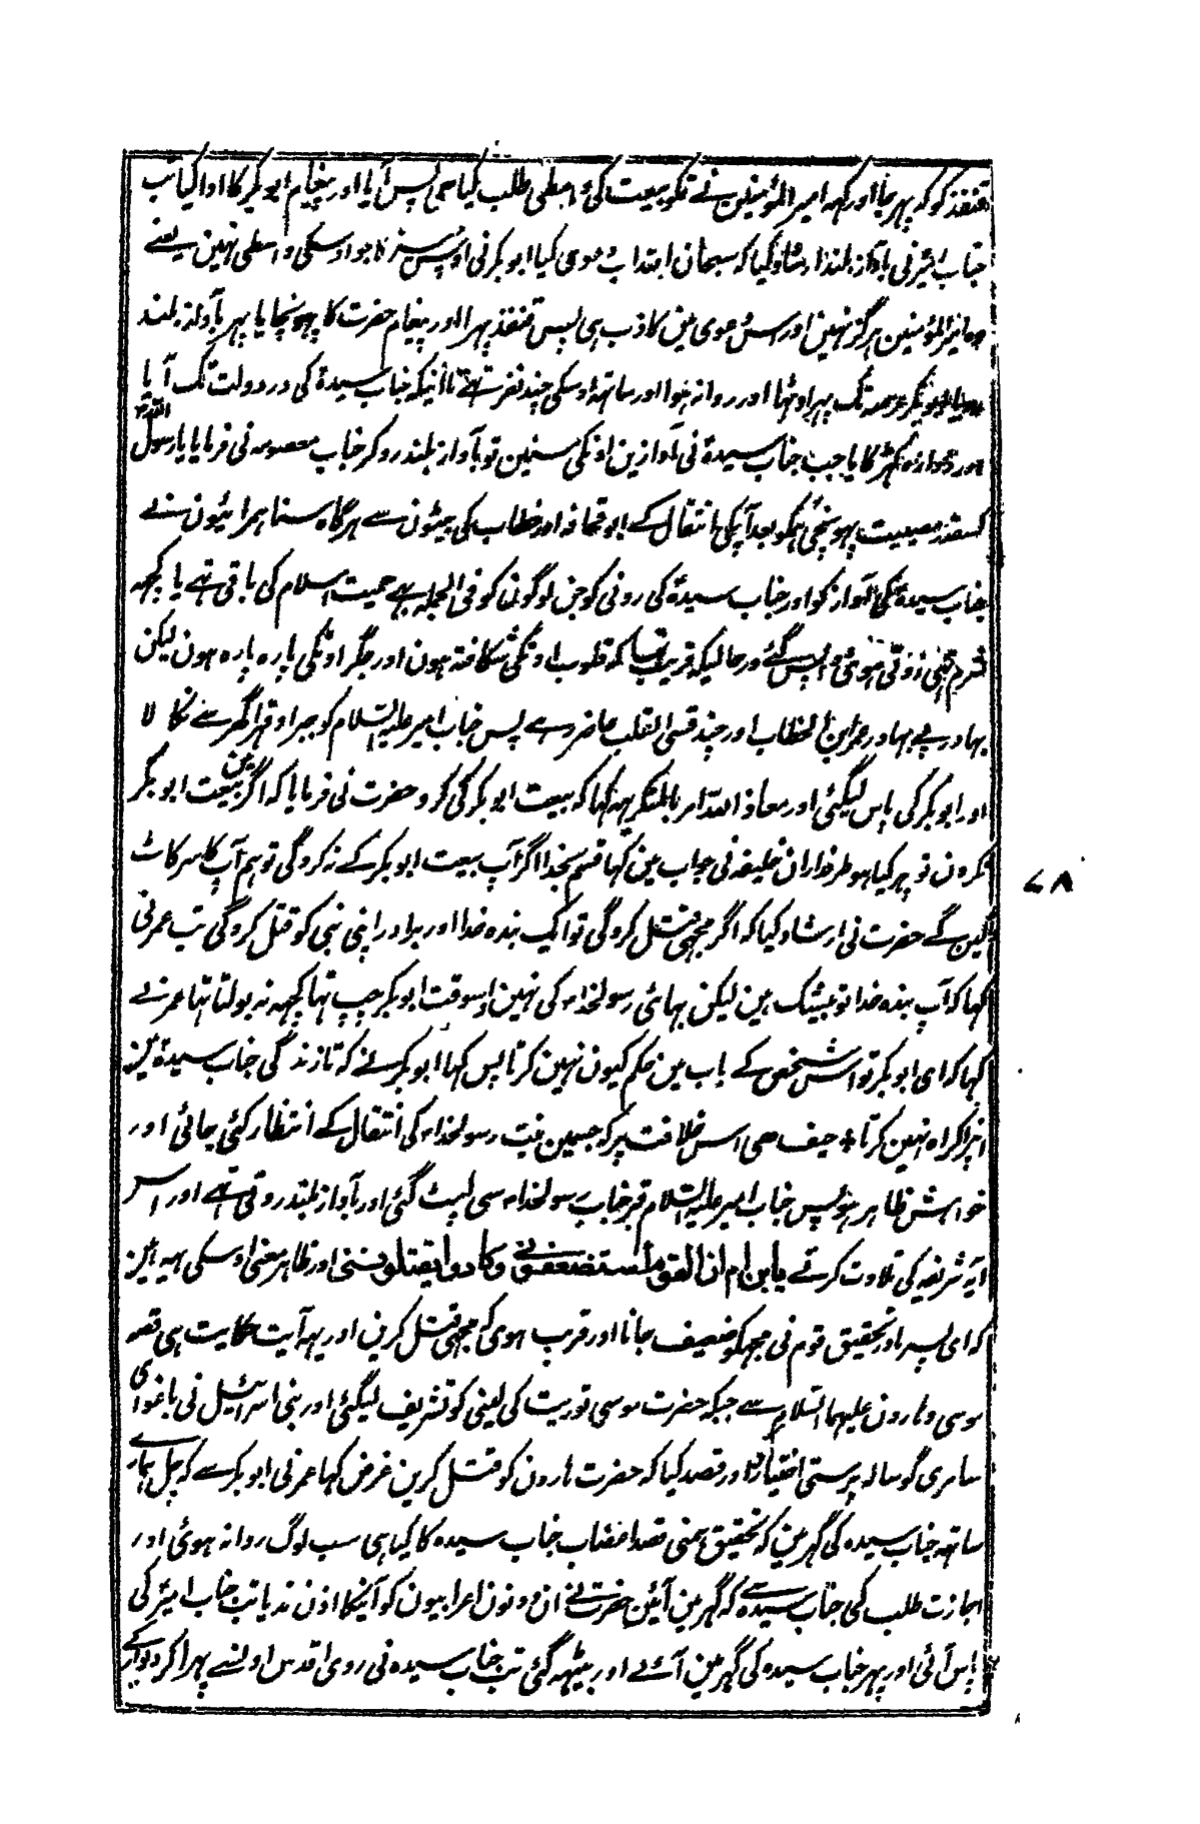 قنفذ کو کہ پہر جا اور کہہ امیر المؤمنین نے تمکو بیعت کی واسطی طلب کیا ہی پس آیا اور پیغام ابو بکر کا ادا کیا تب
جناب امیر نی بآواز بلند ارشاد کیا کہ سبحان ابتدا دعوی کیا ابو بکر نی اوس چیز کا جو اوسکی واسطی نہین یعنے
وہ امیر المؤمنین ہرگز نہین اور اس دعوی مین کاذب ہی پس قنفذ پہرا اور پیغام حضرت کا پہونچایا پہر بآواز بلند
عرصہ تک پہر اوٹہا اور روانہ ہوا اور ساتہہ اوسکی چند نفر تہے تا اینکہ جناب سیدہ کی در دولت تک آیا
اور دروازہ کہڑکایا جب جناب سیدہ نی آوازین اونکی سنین تو بآواز بلند رو کر جناب معصومہ نی فرمایا یا رسول اللہ
کسقدر مصیبت پہونچی ہمکو بعد آپکی انتقال کے ابو قحافہ اور خطاب کی بیٹون سے ہرگاہ سنا ہمرائیون نے
جناب سیدہ کی آواز کو اور جناب سیدہ کی رونی کو جن لوگونکو فی الجملہ بہے حمیت اسلام کی باقی تہے یا کچہہ
شرم تہی روتی ہوئی واپس گئے درحالیکہ قریب تہا کہ قلوب اونکی شگافتہ ہون اور جگر اونکی پارہ پارہ ہون لیکن
بہادر بے بہا ور عمر ابن الخطاب اور چند قسی القلب حاضر رہے پس جناب امیر علیہ السلام کو جبر او قہر اگہر سے نکالا
اور ابو بکر کی پاس لیگئی اور معاذ اللہ امر بالمنکر یہہ کہا کہ بیعت ابو بکر کی کرو حضرت نی فرمایا کہ اگر مین بیعت ابو بکر
نکرون تو پہر کیا ہو طرفداران خلیفہ نی جواب مین کہا قسم بخدا اگر آپ بیعت ابو بکر کے نہ کروگی تو ہم آپ کا سر کاٹ
لین گے حضرت نی ارشاد کیا کہ اگر مجہی قتل کروگی تو ایک بندہ خدا اور برادر اپنی نبی کو قتل کروگی تب عمر نی
کہا کہ آپ بندہ خدا تو بیشک ہین لیکن بہائی رسولخدا کی نہین اسوقت ابو بکر چپ تہا کچہہ نہ بولتا تہا عمر نے
کہا کہ ای ابو بکر تو اس شخص کے باب مین حکم کیون نہین کرتا پس کہا ابو بکر نے کہ تا زندگی جناب سیدہ مین
انپر اکراہ نہین کرتا حیف ہی اس خلافت پر کہ جسمین بنت رسولخدا کی انتقال کے انتظار کئی جائی اور
خواہش ظاہر ہو پس جناب امیر علیہ السلام قبر جناب رسولخدا سی لپٹ گئی اور بآواز بلند روتی تہے اور اس
آیہ شریفہ کی تلاوت کرتے یا ابن ام ان القوم استضعفونی وکادوا یقتلوننی اور ظاہر معنی اوسکی یہہ ہین
کہ ای پسر مادر تحقیق قوم نی مجہکو ضعیف جانا اور قریب ہوی کہ مجہی قتل کرین اور یہہ آیت حکایت ہی قصہ
موسی و ہارون علیہما السلام سے جبکہ حضرت موسی توریت کی لینی کو تشریف لیگئی اور بنی اسرائیل نی باغوای
سامری گوسالہ پرستی اختیار کی اور قصد کیا کہ حضرت ہارون کو قتل کرین غرض کہا عمر نی ابو بکر سے کہ چل ہمارے
ساتہہ جناب سیدہ کی گہر مین کہ تحقیق ہمنی قصد اغضاب جناب سیدہ کا کیا ہی سب لوگ روانہ ہوئی اور
اجازت طلب کی جناب سیدہ سے کہ گہر مین آئین حضرت نے ان دونون اعرابیون کو آنیکا اذن ندیا تب جناب امیر کی
پاس آئی اور پہر جناب سیدہ کی گہر مین آئے اور بیٹہہ گئی تب جناب سیدہ نی روی اقدس اونسے پہرا کر دیوار کے
۷۸